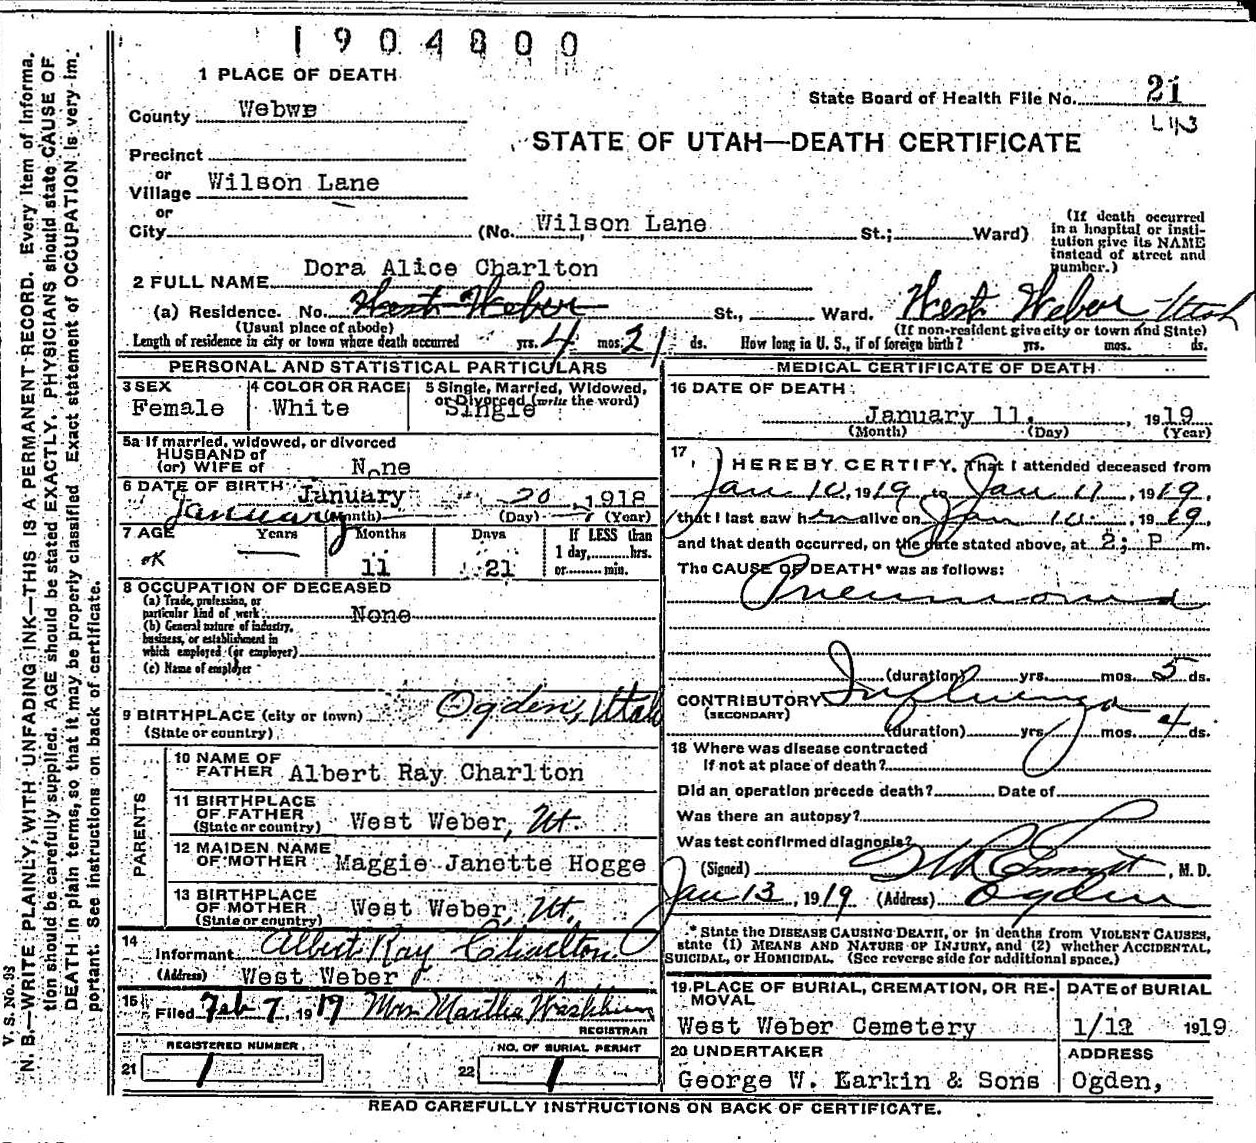 1904800
1 PLACE OF DEATH
County Webwe
State Board of Health File No. 21
STATE OF UTAH—DEATH CERTIFICATE
Precinct
or
Village Wilson Lane
or
City (No. Wilson Lane St.; Ward)
(If death occurred in a hospital or insti-
tution give its NAME instead of street and number.)
2 FULL NAME Dora Alice Charlton
(a) Residence. No. West Weber St., Ward. West Weber Utah
(Usual place of abode) (If non-resident give city or town and State)
Length of residence in city or town where death occurred yrs. 4 mos. 21 ds. How long in U. S., if of foreign birth? yrs. mos. ds.
PERSONAL AND STATISTICAL PARTICULARS
3 SEX Female
4 COLOR OR RACE White
5 Single, Married, Widowed, or Divorced (write the word) Single
5a If married, widowed, or divorced
HUSBAND of
(or) WIFE of None
6 DATE OF BIRTH January 20, 1918
January (Month) (Day) (Year)
7 AGE Years Months Days If LESS than
1 day, hrs.
or min.
OK — 11 21
8 OCCUPATION OF DECEASED
(a) Trade, profession, or
particular kind of work None
(b) General nature of industry,
business, or establishment in
which employed (or employer)
(c) Name of employer
9 BIRTHPLACE (city or town) Ogden, Utah
(State or country)
PARENTS
10 NAME OF FATHER Albert Ray Charlton
11 BIRTHPLACE OF FATHER (State or country) West Weber, Ut.
12 MAIDEN NAME OF MOTHER Maggie Janette Hogge
13 BIRTHPLACE OF MOTHER (State or country) West Weber, Ut.
14 Informant Albert Ray Charlton
(Address) West Weber
15 Filed Feb 7, 1919 Mrs. Martha Washburn
REGISTRAR
21 REGISTERED NUMBER 1
22 NO. OF BURIAL PERMIT 1
MEDICAL CERTIFICATE OF DEATH
16 DATE OF DEATH
January 11, 1919
(Month) (Day) (Year)
17 I HEREBY CERTIFY, That I attended deceased from
Jan 10, 1919 to Jan 11, 1919,
that I last saw her alive on Jan 10, 1919
and that death occurred, on the date stated above, at 2; P m.
The CAUSE OF DEATH* was as follows:
Pneumonia
(duration) yrs. mos. 5 ds.
CONTRIBUTORY Influenza
(SECONDARY)
(duration) yrs. mos. 4 ds.
18 Where was disease contracted
If not at place of death?
Did an operation precede death? Date of
Was there an autopsy?
Was test confirmed diagnosis?
(Signed) , M. D.
Jan 13, 1919 (Address) Ogden
* State the DISEASE CAUSING DEATH, or in deaths from VIOLENT CAUSES,
state (1) MEANS AND NATURE OF INJURY, and (2) whether ACCIDENTAL,
SUICIDAL, or HOMICIDAL. (See reverse side for additional space.)
19. PLACE OF BURIAL, CREMATION, OR RE-
MOVAL
West Weber Cemetery
DATE of BURIAL
1/12 1919
20 UNDERTAKER
George W. Larkin & Sons
ADDRESS
Ogden,
READ CAREFULLY INSTRUCTIONS ON BACK OF CERTIFICATE.
V. S. No. 98
N. B.—WRITE PLAINLY, WITH UNFADING INK—THIS IS A PERMANENT RECORD. Every item of informa-
tion should be carefully supplied. AGE should be stated EXACTLY. PHYSICIANS should state CAUSE OF
DEATH in plain terms, so that it may be properly classified. Exact statement of OCCUPATION is very im-
portant. See instructions on back of certificate.